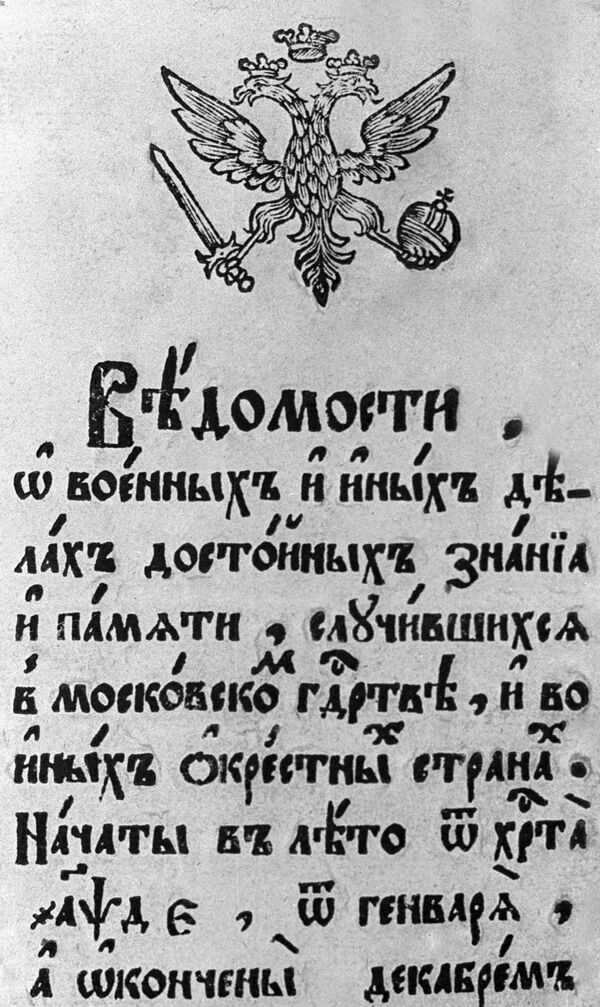 Вѣ́домости ,
ѡ҆ вое́нныхъ и҆ и҆ны́хъ дѣ-
ла́хъ досто́йныхъ зна́нїа
и҆ па́мѧти , слꙋчи́вшихсѧ
в̾ моско́вскоⷨ гⷭ҇дртвѣ , и҆ во
и҆ны́хъ ѻ҆кре́стныⷯ странаⷯ .
На́чаты въ лѣ́то ѿ хрⷭ҇та̀
҂аѱд є , ѿ генварѧ̀ ,
а҆ ѡ҆кончены̀ декабре́мъ